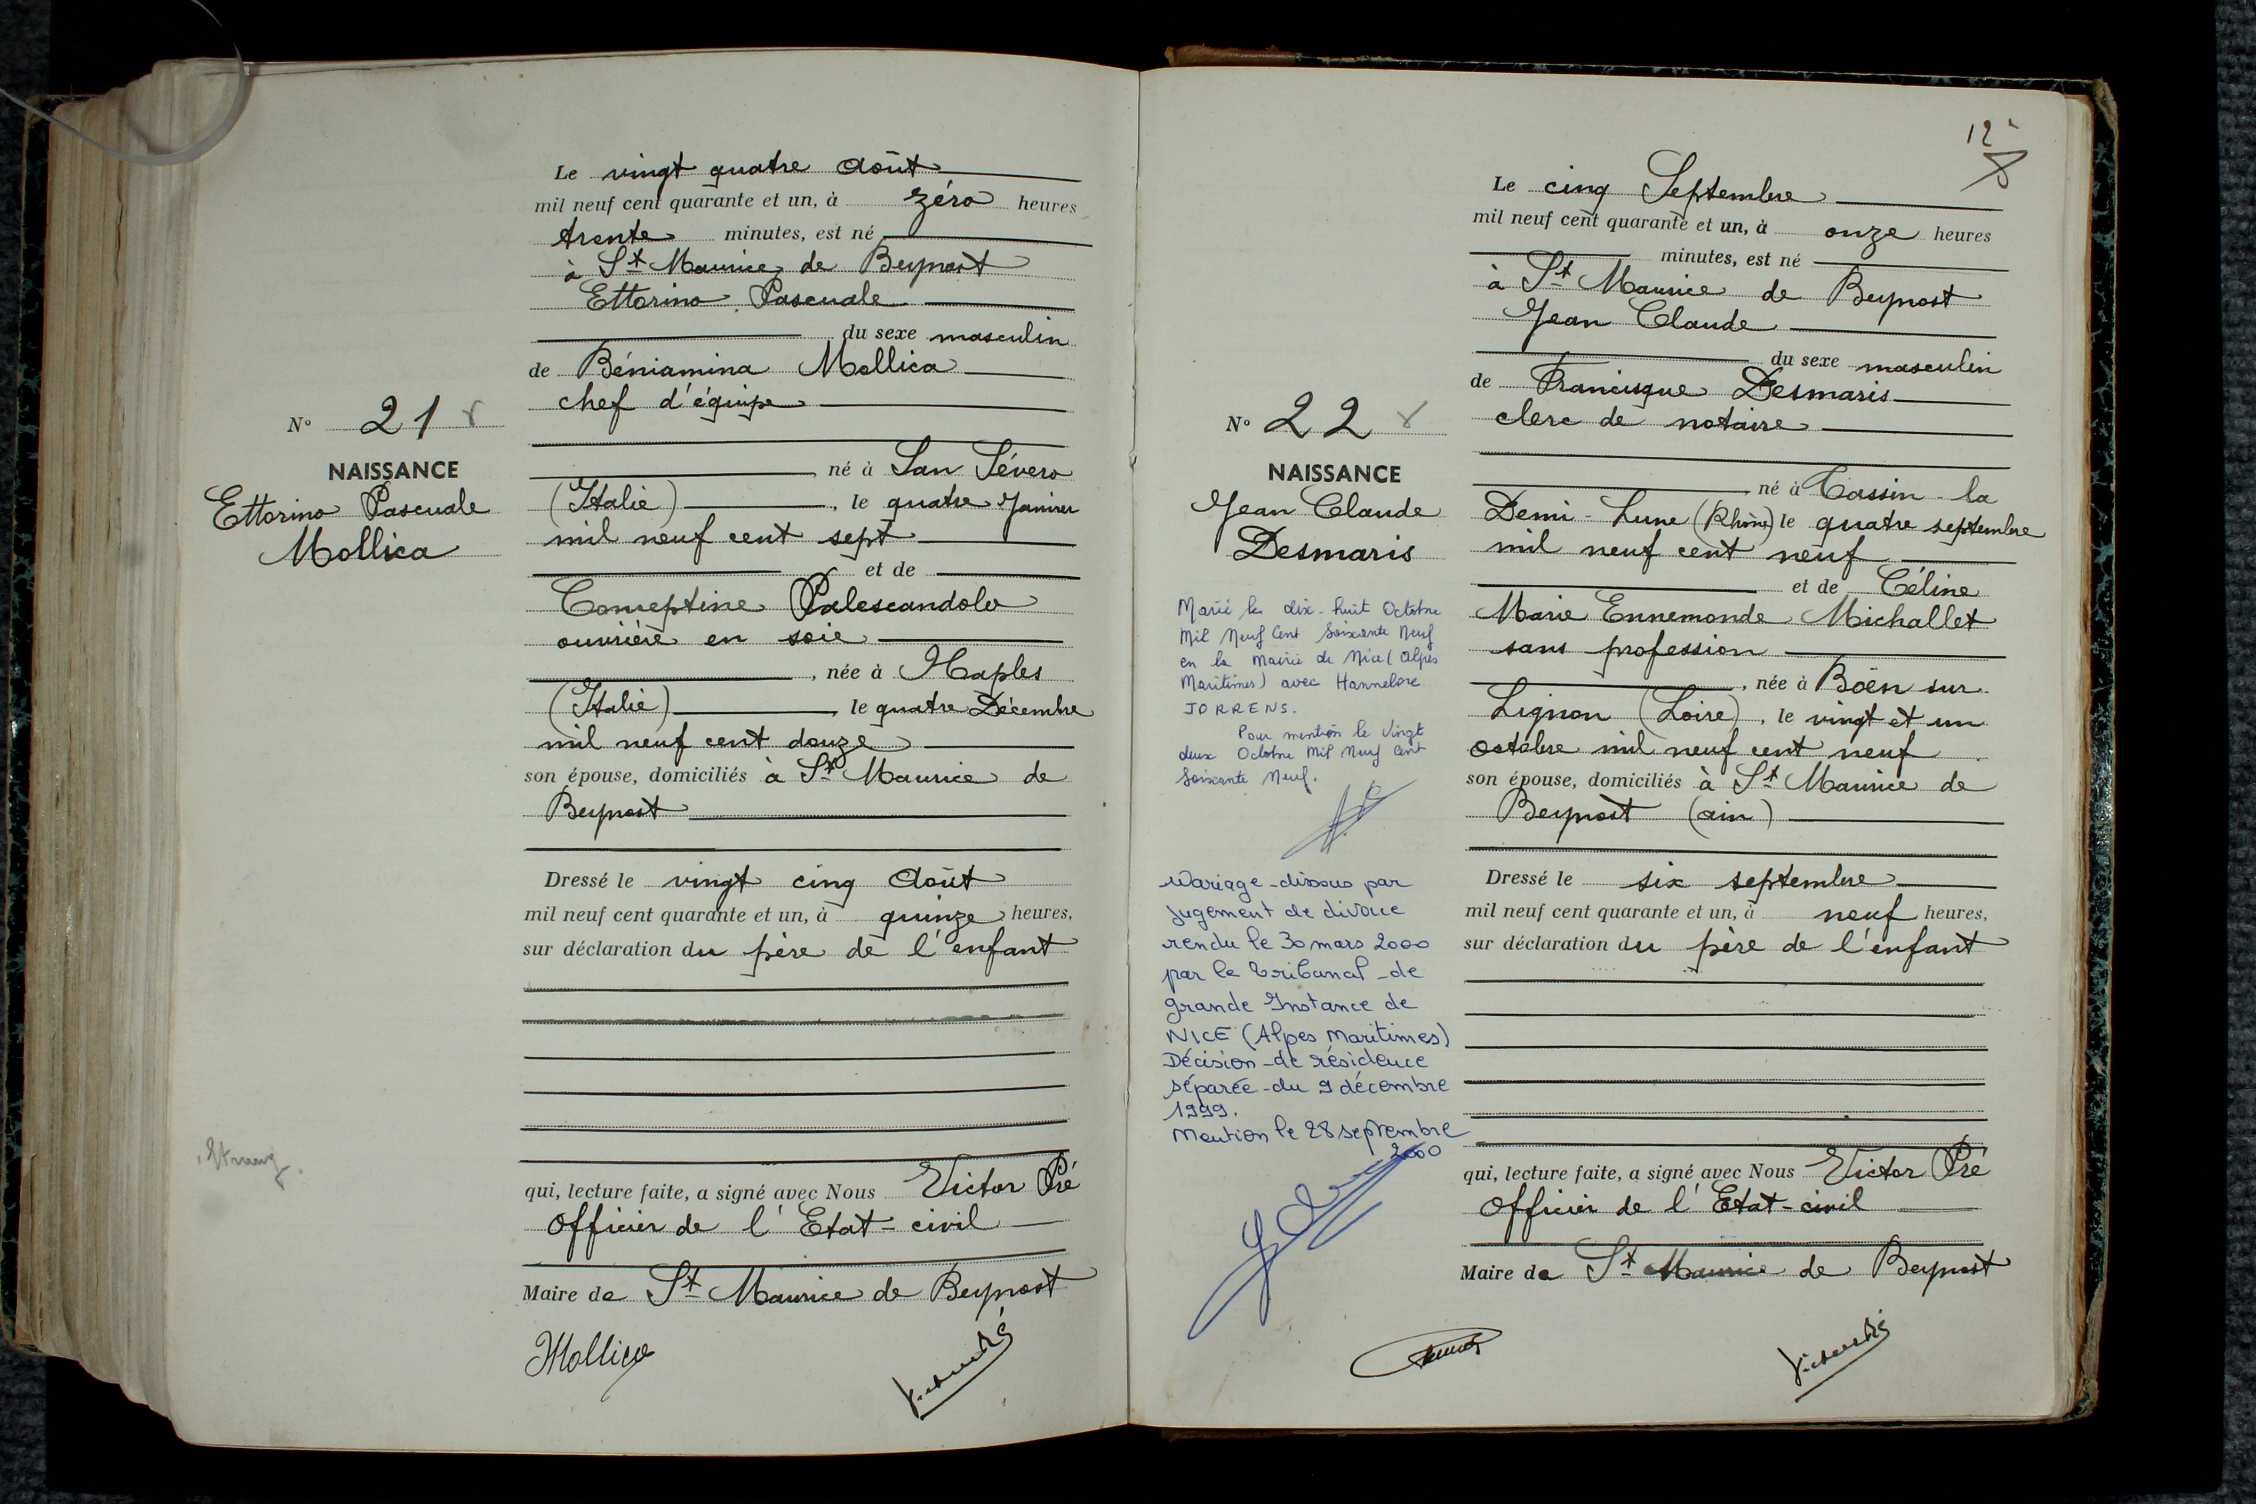 Le vingt quatre Août
mil neuf cent quarante et un, à zéro heures
trente minutes, est né
à St Maurice de Beynost
Ettorino Pascuale
du sexe masculin
de Béniamina Mollica
chef d'équipe
N° 21
NAISSANCE
Ettorino Pascuale
Mollica
né à San Sévero
(Italie), le quatre Janvier
mil neuf cent sept
et de
Conceptine Palescandolo
ouvrière en soie
, née à Naples
(Italie), le quatre Décembre
mil neuf cent douze
son épouse, domiciliés à St Maurice de
Beynost
Dressé le vingt cinq Août
mil neuf cent quarante et un, à quinze heures,
sur déclaration du père de l'enfant
qui, lecture faite, a signé avec Nous Victor Pré
Officier de l'Etat-civil
Maire de St Maurice de Beynost
Mollica
Victor Pré
12
Le cinq Septembre
mil neuf cent quarante et un, à onze heures
minutes, est né
à St Maurice de Beynost
Jean Claude
du sexe masculin
de Francisque Desmaris
clerc de notaire
N° 22
NAISSANCE
Jean Claude
Desmaris
Marié le dix-huit Octobre
Mil Neuf Cent Soixante Neuf
en la Mairie de Nice (Alpes
Maritimes) avec Hannelore
JORRENS.
Pour mention le Vingt
deux Octobre Mil Neuf Cent
Soixante Neuf.
Mariage dissous par
jugement de divorce
rendu le 30 mars 2000
par le Tribunal de
grande Instance de
NICE (Alpes Maritimes)
Décision de résidence
séparée du 9 décembre
1999.
Mention le 28 septembre
2000
né à Tassin-la
Demi-Lune (Rhône) le quatre septembre
mil neuf cent neuf
et de Céline
Marie Ennemonde Michallet
sans profession
, née à Boën sur
Lignon (Loire), le vingt et un
octobre mil neuf cent neuf
son épouse, domiciliés à St Maurice de
Beynost (ain)
Dressé le six septembre
mil neuf cent quarante et un, à neuf heures,
sur déclaration du père de l'enfant
qui, lecture faite, a signé avec Nous Victor Pré
Officier de l'Etat-civil
Maire de St Maurice de Beynost
Victor Pré